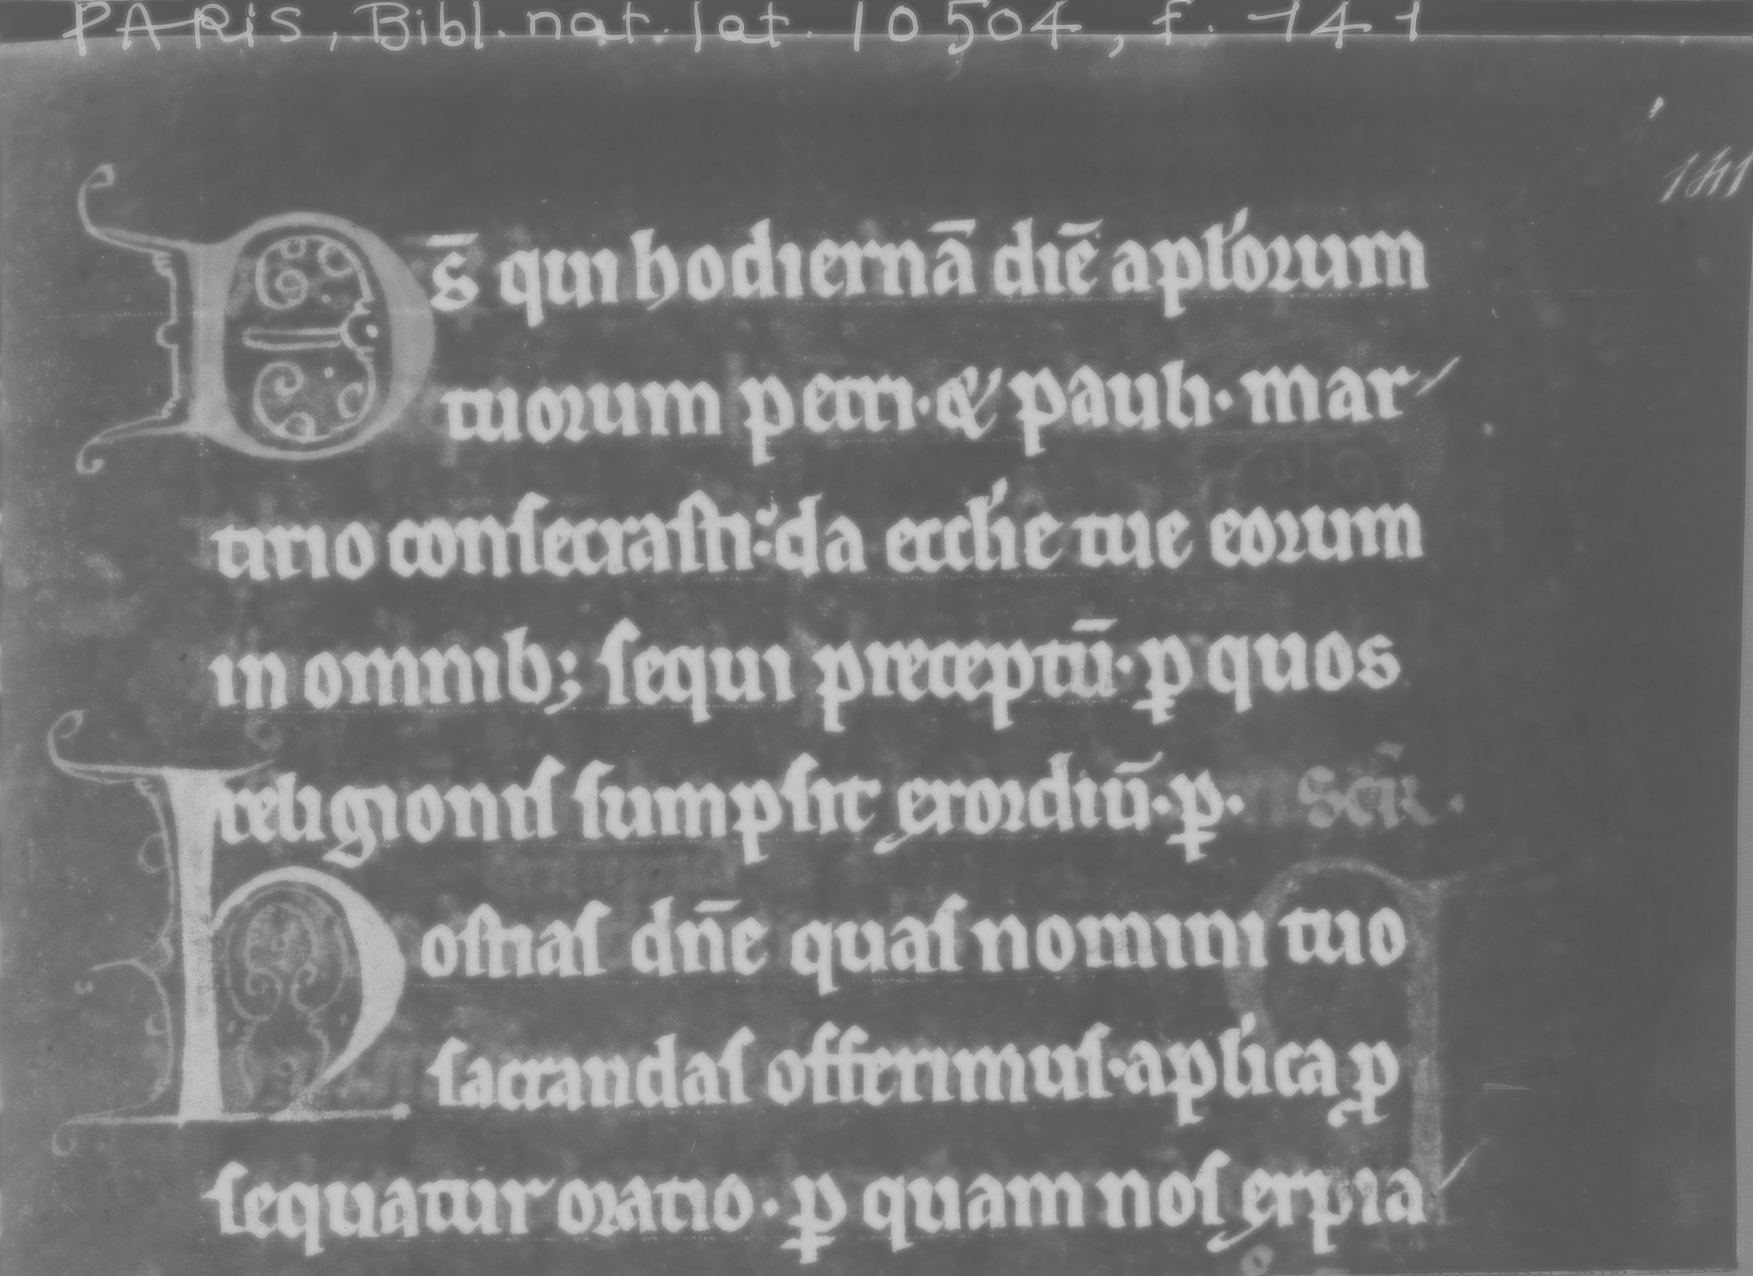 PARIS, Bibl. nat. lat. 10504, f. 141
141
Ds̄ qui hodiernā diē apl'orum
tuorum petri · & pauli · mar
tirio consecrasti: da eccl'ie tue eorum
in omnib; sequi preceptū · ꝑ quos
religionis sumpsit exordiū · ꝑ · SCR̄ .
hostias dn̄e quas nomini tuo
sacrandas offerimus · apl'ica ꝓ
sequatur oratio · ꝑ quam nos expia